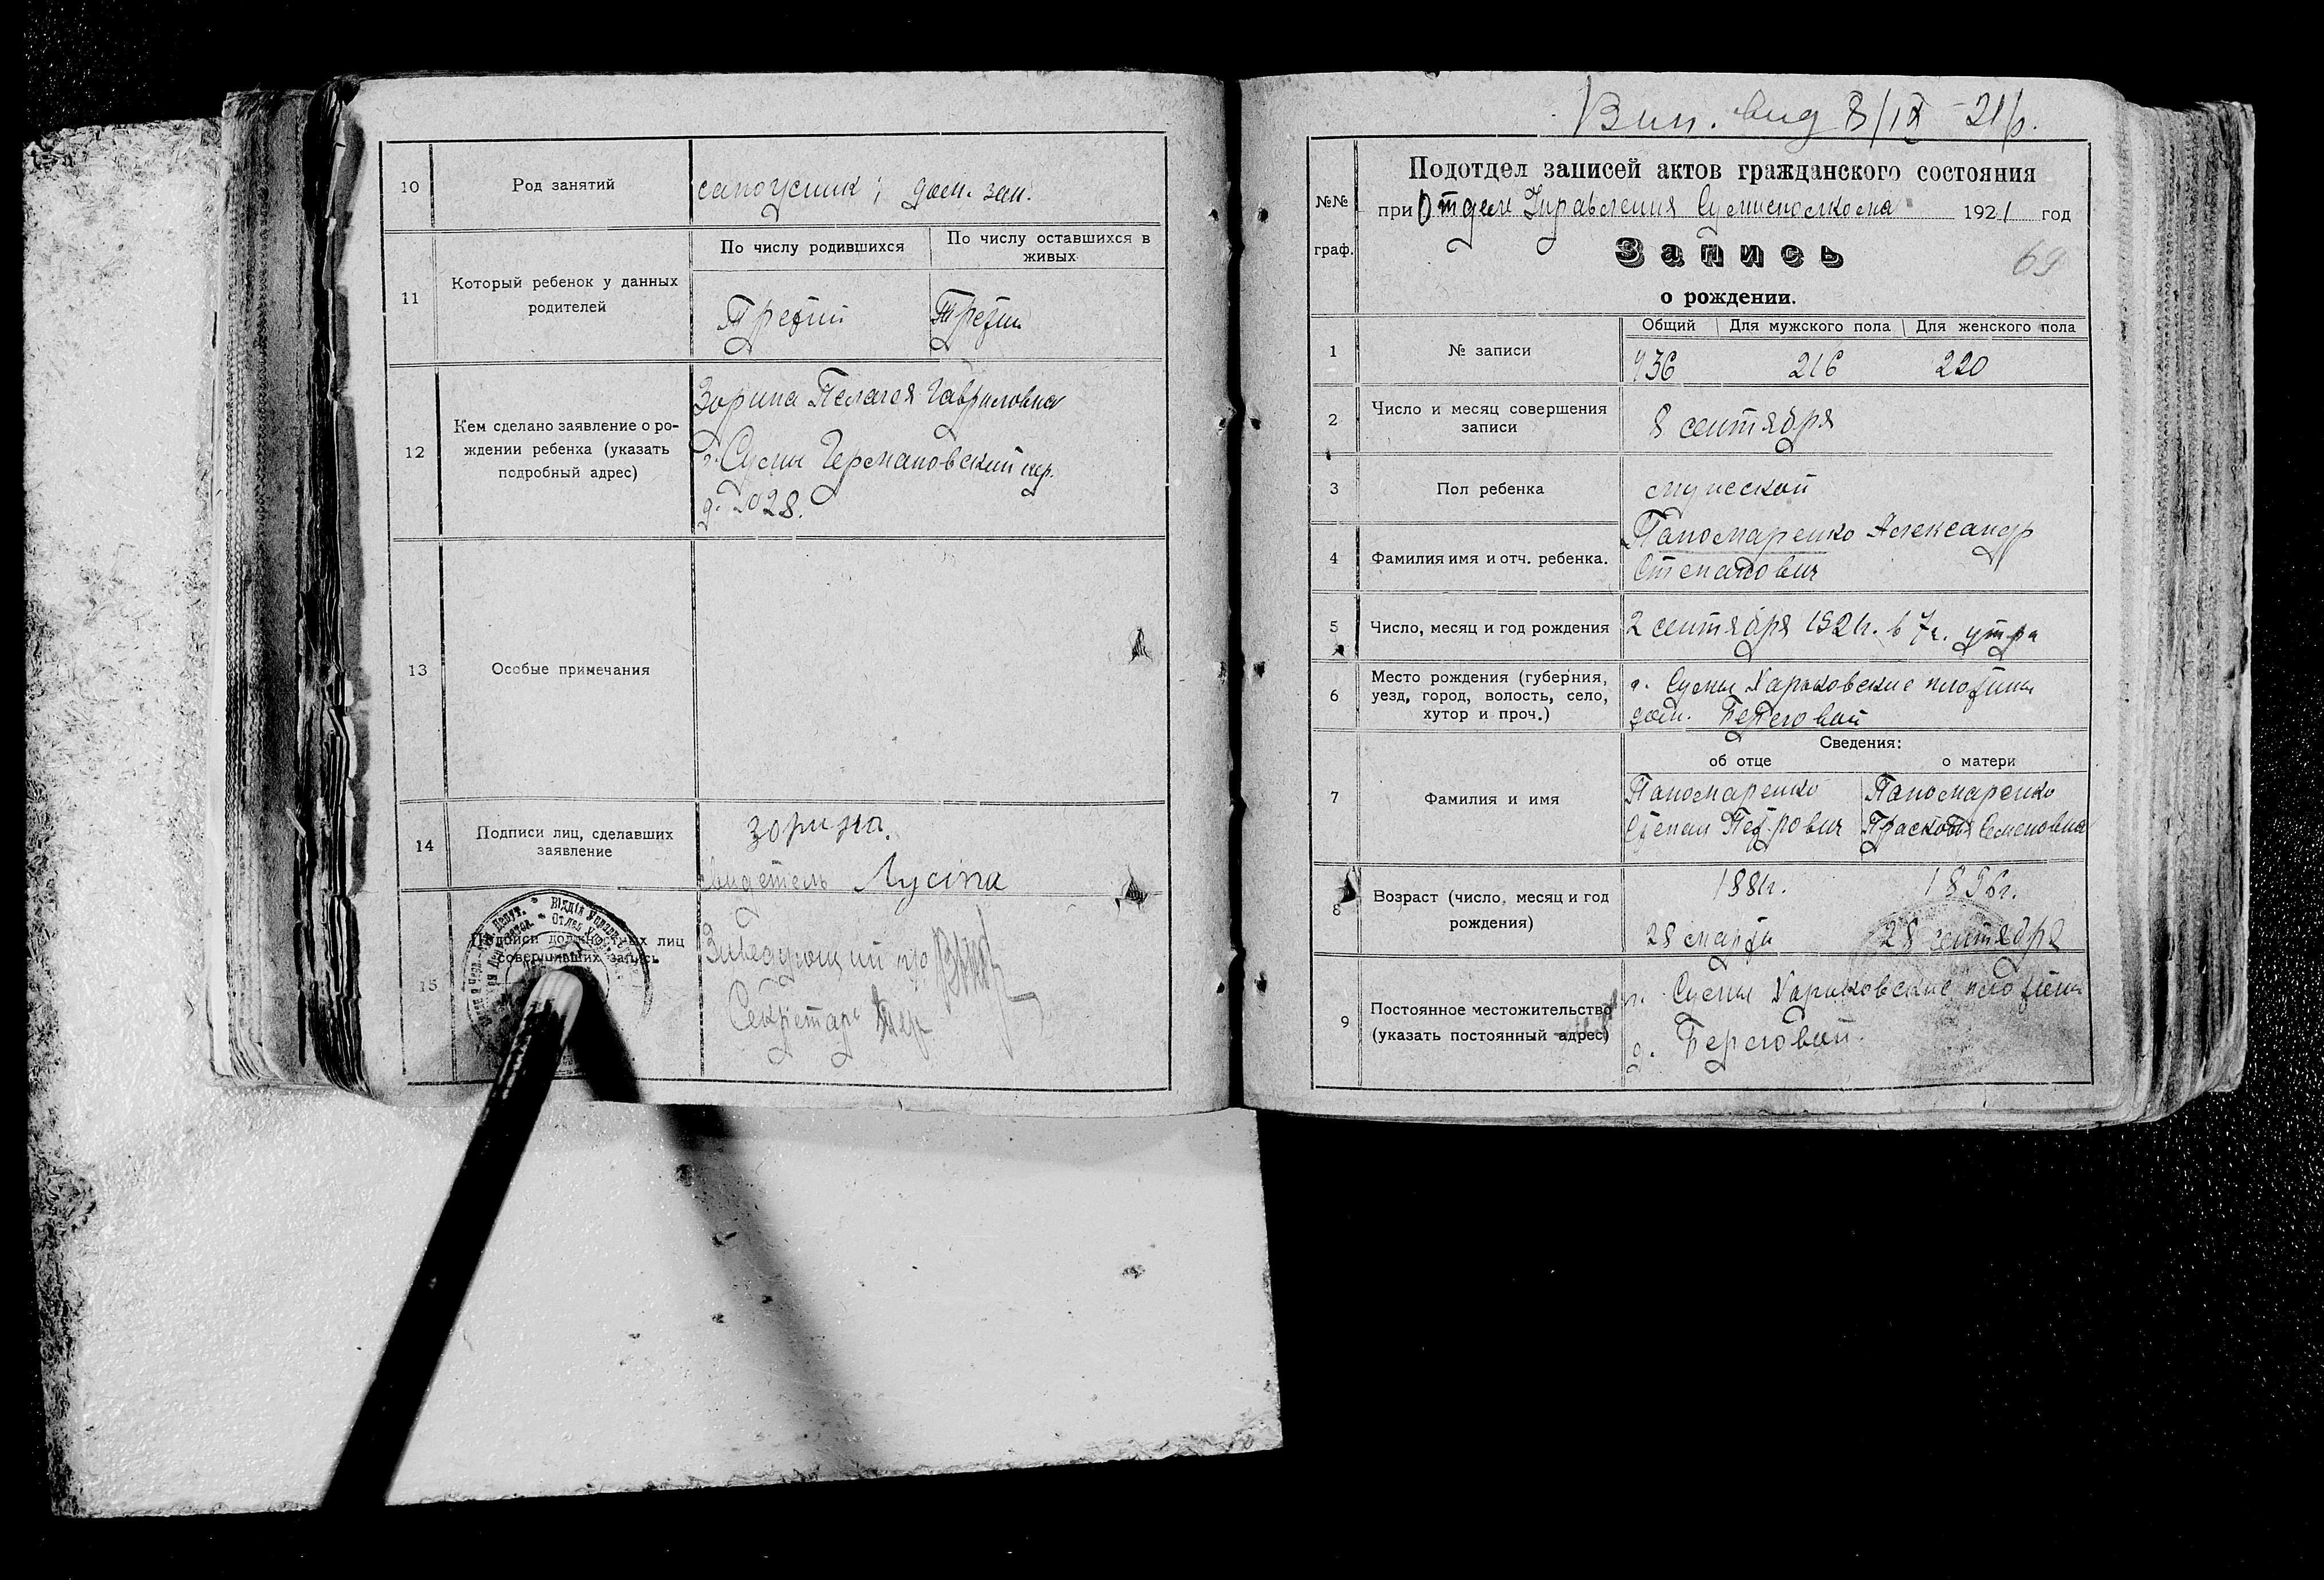 10
Род занятий
сапожник; дом. зан.
11
Который ребенок у данных
родителей
По числу родившихся
По числу оставшихся в
живых
Третий
Третий
12
Кем сделано заявление о ро-
ждении ребенка (указать
подробный адрес)
Зорина Пелагея Гавриловна
г. Сумы Германовский пер.
д. №28.
13
Особые примечания
14
Подписи лиц, сделавших
заявление
Зорина.
свидетель Лусіна
15
Подписи должностных лиц
совершивших запись
Заведующий п/о
Секретарь
Вип. вид 8/IX 21р.
№№
граф.
Подотдел записей актов гражданского состояния
при Отделе Управления Сумисполкома 1921 год
Запись
69
о рождении.
1
№ записи
Общий
Для мужского пола
Для женского пола
436
216
220
2
Число и месяц совершения
записи
8 сентября
3
Пол ребенка
мужской
4
Фамилия имя и отч. ребенка.
Пономаренко Александр
Степанович
5
Число, месяц и год рождения
2 сентября 1921г. в 7ч. утра
6
Место рождения (губерния,
уезд, город, волость, село,
хутор и проч.)
г. Сумы Харьковские
дом. Береговой
Сведения:
об отце
о матери
7
Фамилия и имя
Пономаренко
Степан Петрович
Пономаренко
Прасковья Семеновна
8
Возраст (число, месяц и год
рождения)
1881г.
28 марта
1896г.
28 сентября
9
Постоянное местожительство
(указать постоянный адрес)
г. Сумы Харьковские
д. Береговой.